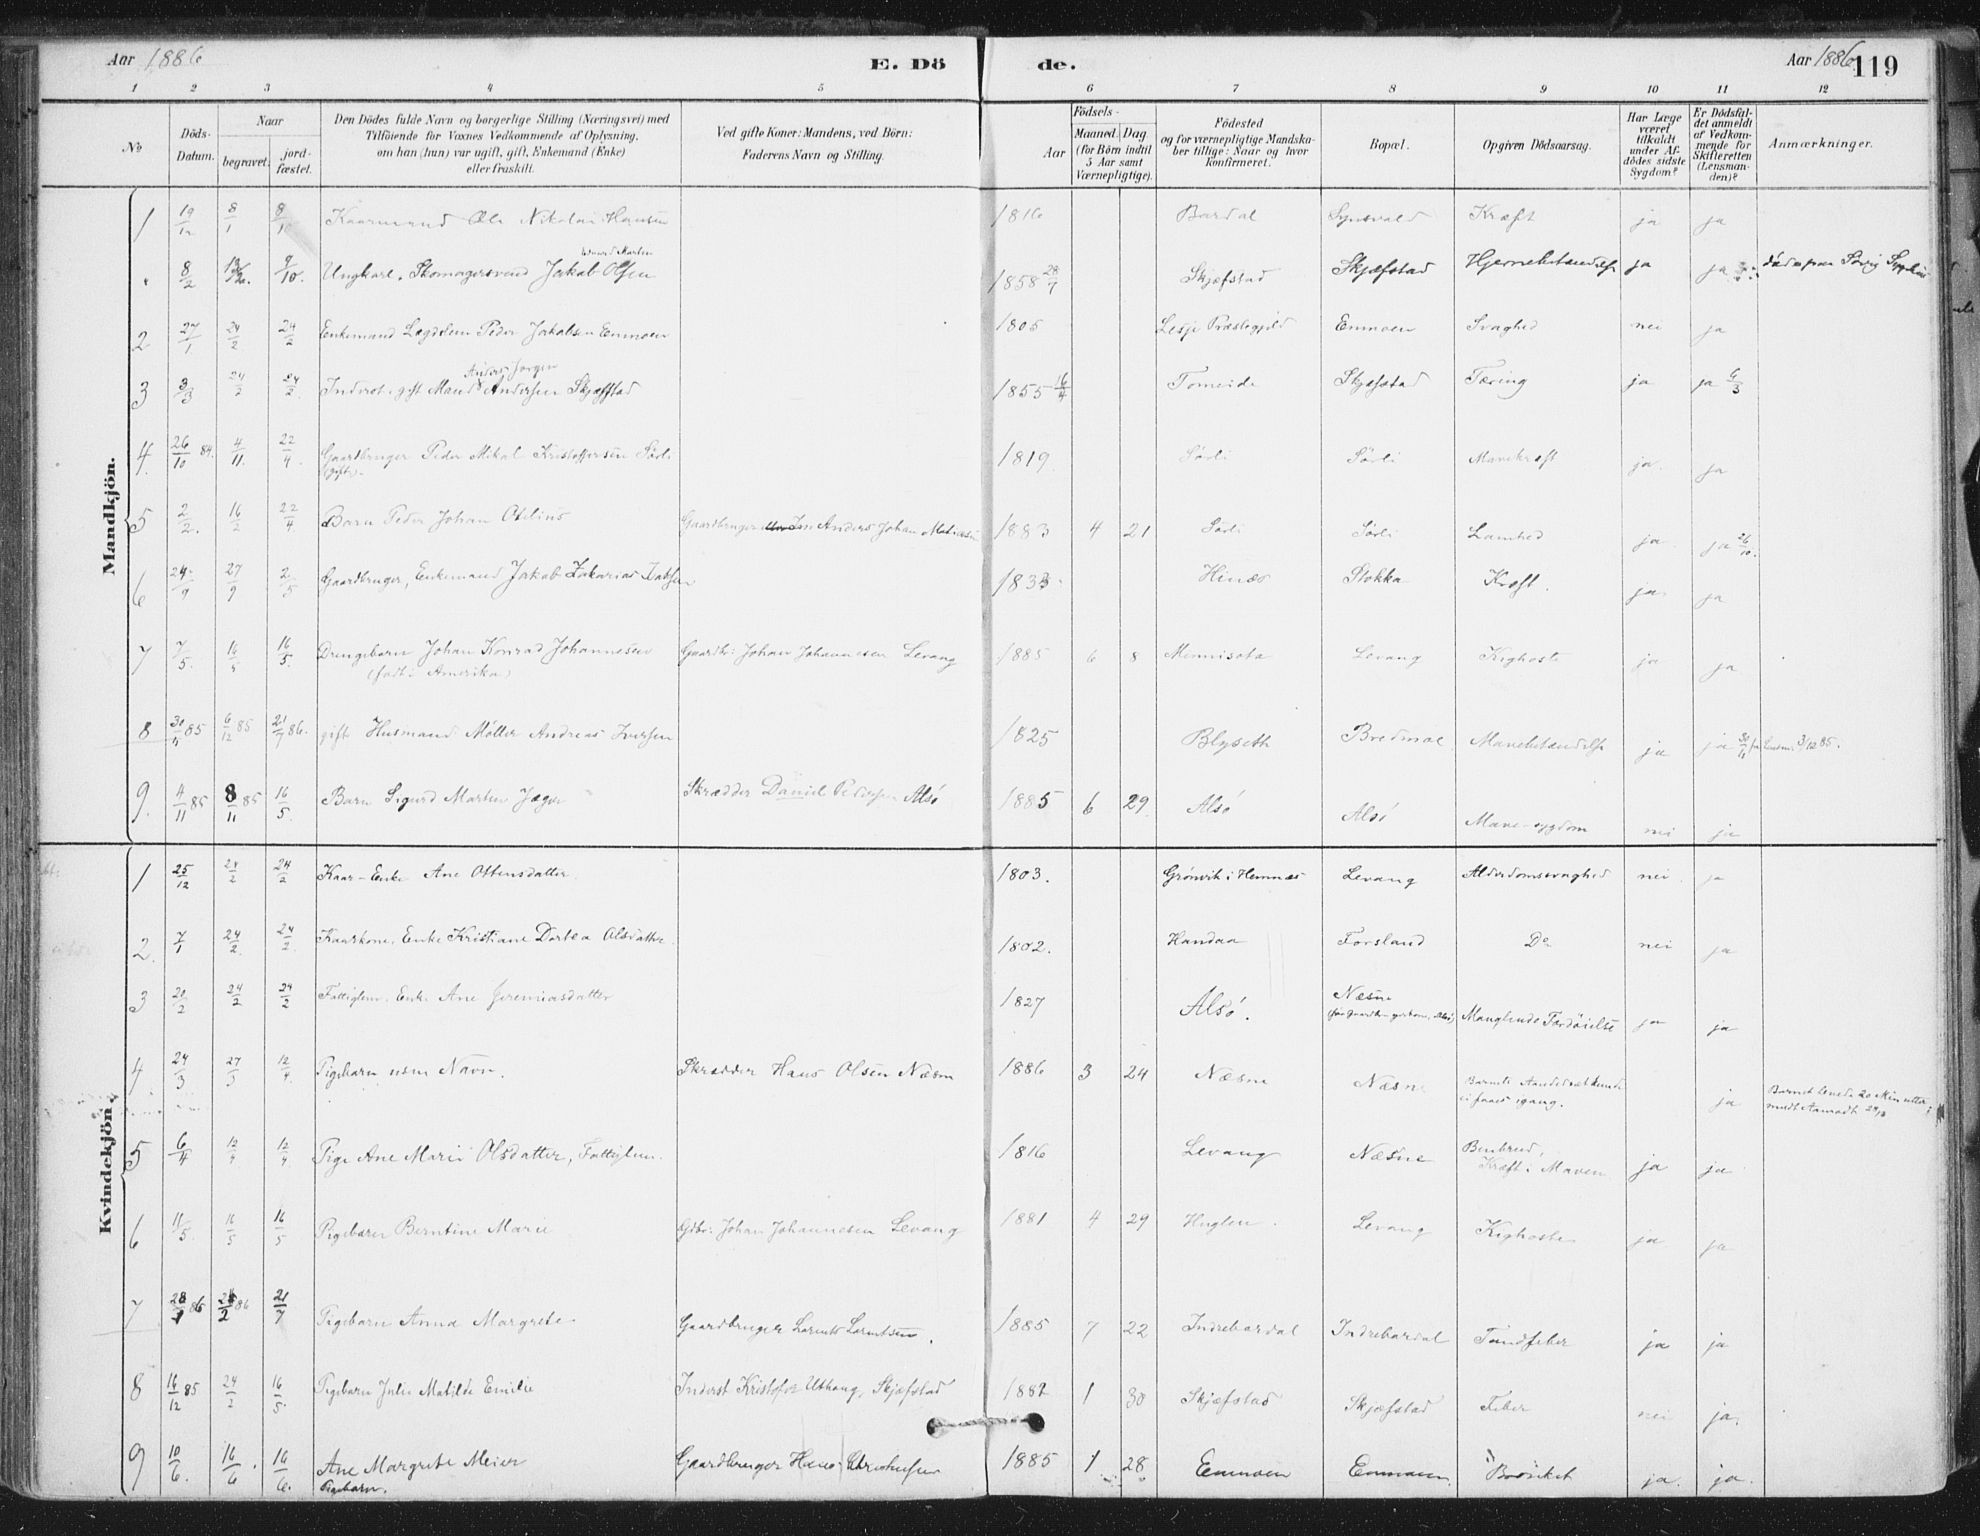 Aar 1886
E. Dö
de.
Aar 1886
119
1 2 3 4 5 6 7 8 9 10 11 12
No
Döds-Datum.
Naar
begravet.
jord-fæstet.
Den Dödes fulde Navn og borgerlige Stilling (Næringsvei) med
Tilföiende for Voxnes Vedkommende af Oplysning,
om han (hun) var ugift, gift, Enkemand (Enke)
eller fraskilt.
Ved gifte Koner: Mandens, ved Börn:
Faderens Navn og Stilling.
Födsels-
Aar
Maaned. Dag
(for Börn indtil
5 Aar samt
Værnepligtige).
Födested
og for værnepligtige Mandska-
ber tillige: Naar og hvor
konfirmeret.
Bopæl.
Opgiven Dödsaarsag.
Har Læge
været
tilkaldt
under Af-
dödes sidste
Sygdom?
Er Dödsfal-
det anmeldt
af Vedkom-
mende for
Skifteretten
(Lensman-
den)?
Anmærkninger.
Mandkjön.
1 19/12 8/1 8/1 Kaarmand Ole Nikolai Hansen 1816 Bardal Kræft ja ja
8/2 9/10. Ungkarl, Skomagersvend Jakob Olsen 1858 28/7 Skjæfstad Skjæfstad Hjernebetændelse ja ja
2 27/1 24/2 24/2 Enkemand Lægdslem Peder Jakobsen Enmoen 1805 Lesje Præstegjeld Enmoen Svaghed nei ja
Anders Jørgen
3 3/3 24/2 24/2. Inderst, gift Mand Andersen Skjæfstad 1855 16/4 Tomeide Skjæfstad Tæring ja ja 6/3
4. 26/10 84. 4/11. 22/4. Gaardbruger Peder Mikal Kristoffersen Sörli 1819. Sörli Sörli Mavekræft ja. ja
(gift).
5 2/2. 16/2 22/4 Barn Peder Johan Otelius Gaardbruger Anders Johan 1883 4 21 Sörli Sörli Lamhed ja ja 26/10.
6 24/9 27/9 2/5 Gaardbruger, Enkemand Jakob Zakarias 1833 Hinæs Stokka Kræft. ja. ja
7 7/5. 16/5 16/5. Drengebarn Johan Konrad Johannesen Gaardb: Johan Johannesen Levang 1885 6 8 Levang Kighoste ja ja
(født i Amerika)
8 30/11 85 6/12 85 21/7 86. gift Husmand Møller Andreas Iversen 1825 Blyseth Mavebetændelse ja ja 3/12 85.
9. 4/11 85 8/11 85 16/5. Barn Sigurd Marten Jæger Skrædder Daniel Pedersen Alsö 1885 6 29. Alsö Alsö Mavesygdom nei ja
Kvindekjön.
1 25/12 24/2 24/2 Kaar-Enke Ane Ottensdatter. 1803. Grönvik i Hemnæs Levang Alderdomssvaghed nei. ja
2. 7/1 24/2. 24/2. Kaarkone, Enke Kristiane Dortea Olsdatter. 1802. Handaa Forsland Do nei ja
3 20/2 24/2 24/2 Fattiglem, Enke Ane Jeremiasdatter 1827 Alsö. Næsne Manglende Fordöielse ja ja
4 24/3 27/3 12/4. Pigebarn Navn. Skrædder Hans Olsen Næsne 1886 3 24 Næsne Næsne Barnets Aandedræt kunde ja Barnet levede 20 Min
ei faaes igang.
5 6/4 12/4 12/4. Pige Ane Marie Olsdatter, Fattiglem. 1816 Levang Næsne Benbrud, ja ja
Kræft i Maven
6 11/5. 16/5 16/5 Pigebarn Berntine Marie Gdbr: Johan Johannesen Levang 1881 4 29 Huglen. Levang Kighoste ja ja
7 28/1 86 86 21/7 Pigebarn Anna Margrete Gaardbruger Lornts Lorntsen. 1885 7 22 Indrebardal Indrebardal Tandfeber ja ja
8 16/12 85 24/2 16/5. Pigebarn Julie Matilde Emilie Inderst Kristofer Uthaug, Skjæfstad 1882 1 30 Skjæfstad Skjæfstad Feber nei ja.
9 10/6. 16/6 16/6. Ane Margrete Meier Gaardbruger Hans 1885 1 28 Enmoen Enmoen ja. ja.
Pigebarn.